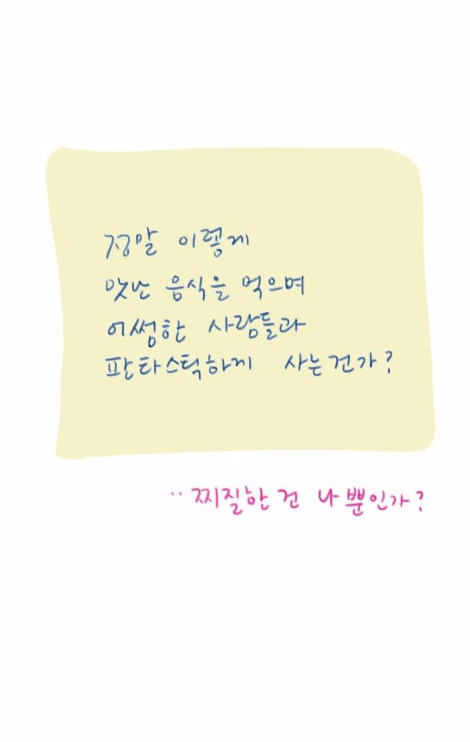 정말 이렇게
맛난 음식을 먹으며
어썸한 사람들과
판타스틱하게 사는건가?
‥찌질한 건 나뿐인가?